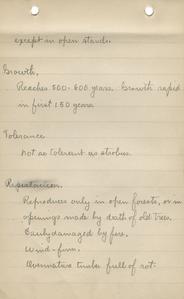 except in open stands.
Growth.
Reaches 500-600 years. Growth rapid
in first 150 years.
Tolerance
Not as tolerant as strobus.
Reproduction.
Reproduces only in open forests, or in
openings made by death of old trees.
Easily damaged by fire.
Wind-firm.
Overmature timber full of rot.